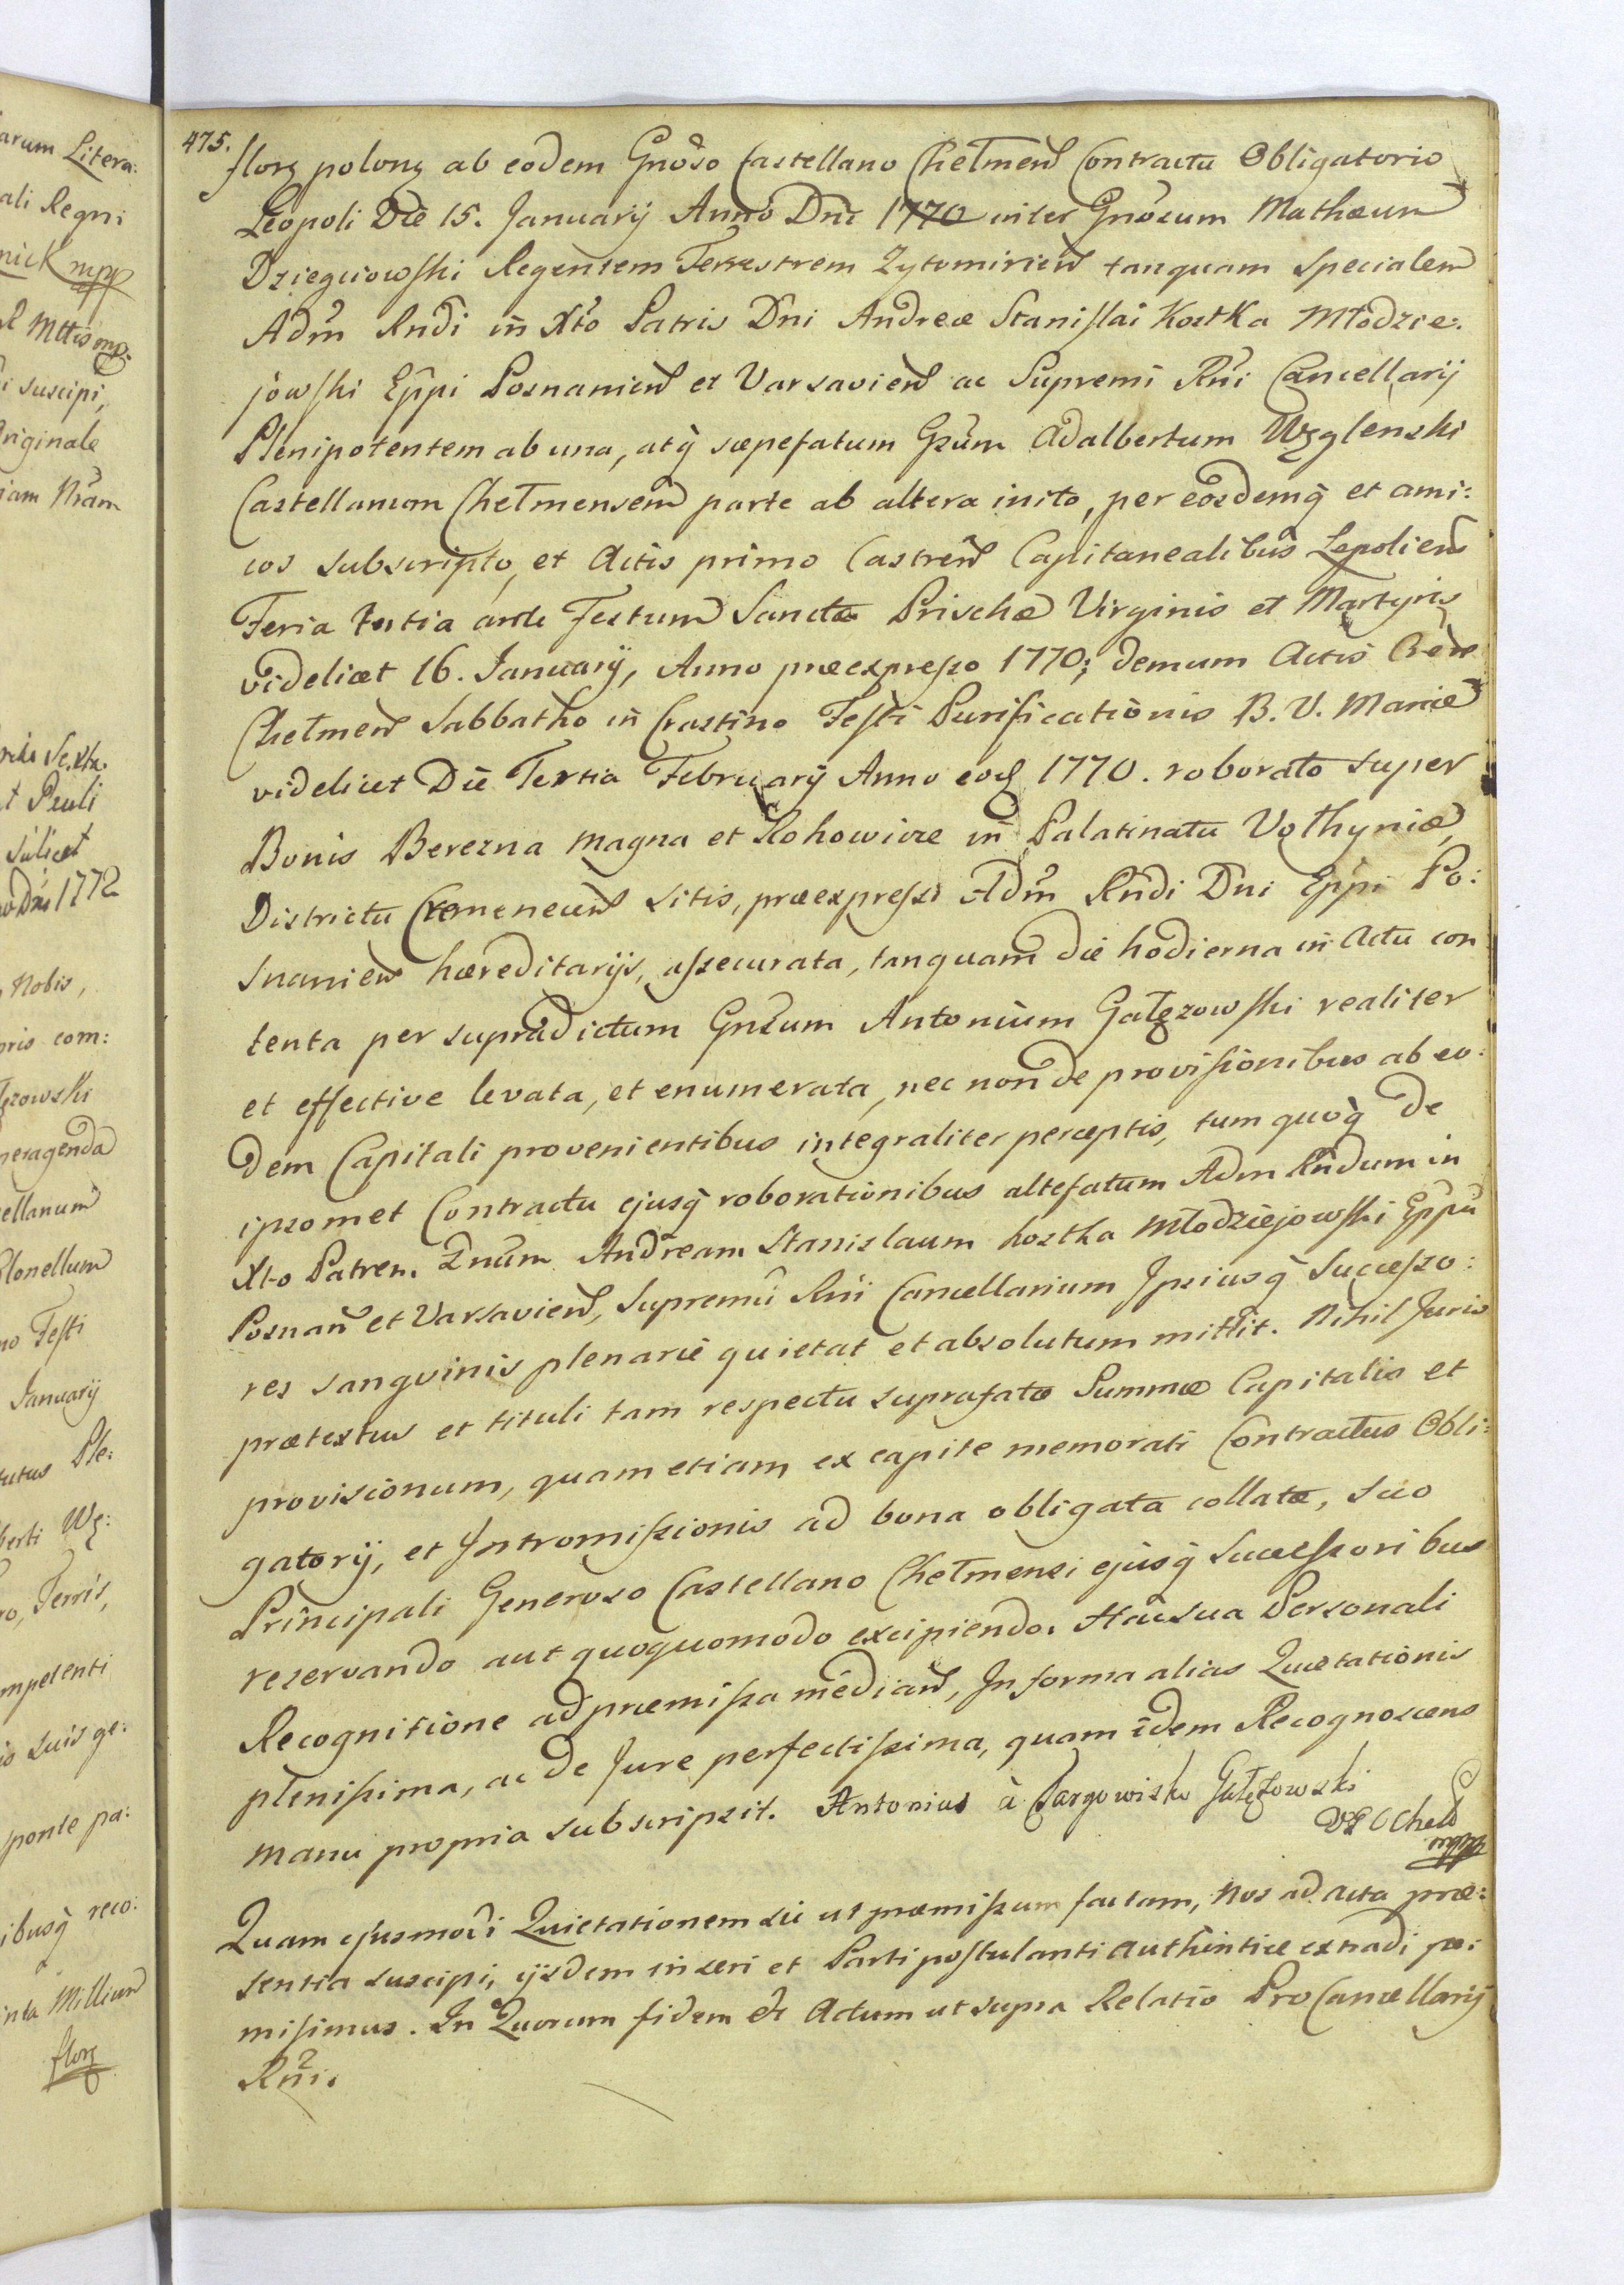 475.
florz polonz ab eodem Gnoso Castellano Chełmen Contractu Obligatorio
Leopoli Die 15. Januarij Anno Dni 1770 inter Gnosum Mathæum
Dzieguiowski Regentem Terrestrem Zytomirien tanquam specialem
Adm Rndi in Xto Patris Dni Andreæ Stanislai Kostka Młodzie:
jowski Eppi Posnanien et Varsavien ac Supremi Rni Cancellarij
Plenipotentem ab una, atq sæpefatum Gsum Adalbertum Węglenski
Castellanum Chełmensem parte ab altera inito, per eosdemq et ami:
cos subscripto, et Actis primo Castren Capitanealibus Lepolien
Feria tertia ante Festum Sanctæ Prischæ Virginis et Martyris
videlicet 16. Januarij, Anno præexpresso 1770; demum Actis
Chełmen Sabbatho in Crastino Festi Purificationis B. V. Mariæ
videlicet Die Tertia Februarij Anno eod 1770. roborato super
Bonis Berezna magna et Rohowicze in Palatinatu Vołhyniæ,
Districtu Cremenecen sitis, præexpressi Adm Rndi Dni Eppi Po:
snanien hæreditarijs, assecurata, tanquam die hodierna in Actu con
tenta per supradictum Gnsum Antonium Gałęzowski realiter
et effective levata, et enumerata, nec non de provisionibus ab eo:
dem Capitali provenientibus integraliter perceptis, tum quoq de
ipsomet Contractu ejusq roborationibus altefatum Adm Rndum in
Xto Patrem Dnum Andream Stanislaum Kostka Młodziejowski Eppu
Posnan et Varsavien, Supremu Rni Cancellarium Ipsiusq Successo:
res sangvinis plenarie quietat et absolutum mittit. Nihil Juris
prætextus et tituli tam respectu suprafatæ Summæ Capitalis et
provisionum, quam etiam ex capite memorati Contractus Obli:
gatorij, et Intromissionis ad bona obligata collatæ, suo
Principali Generoso Castellano Chełmensi ejusq Successoribus
reservando aut quoquomodo excipiendo. Hac sua Personali
Recognitione ad præmissa median, In forma alias Quietationis
plenissima, ac de Jure perfectissima, quam idem Recognoscens
manu propria subscripsit. Antonius à Targowisko Gałęzowski
mpp
Quam ejusmodi Quietationem sic ut præmissum factam, Nos ad Acta præ:
sentia suscipi, ijsdem inseri et Parti postulanti authentice extradi per:
misimus. In Quorum fidem etc Actum ut supra Relatio ProCancellarij
Rni.